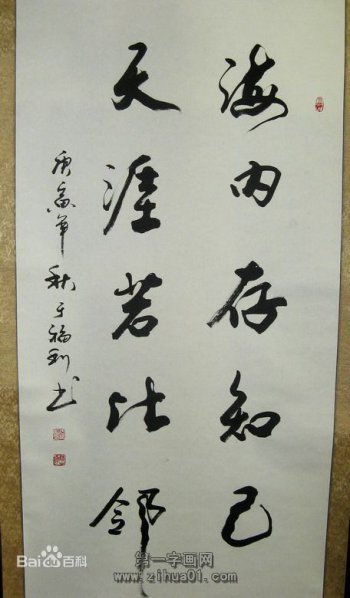 海内存知己
天涯若比邻
庚寅年秋于福利书
Bai百科
第一字画网
www.zihua01.com